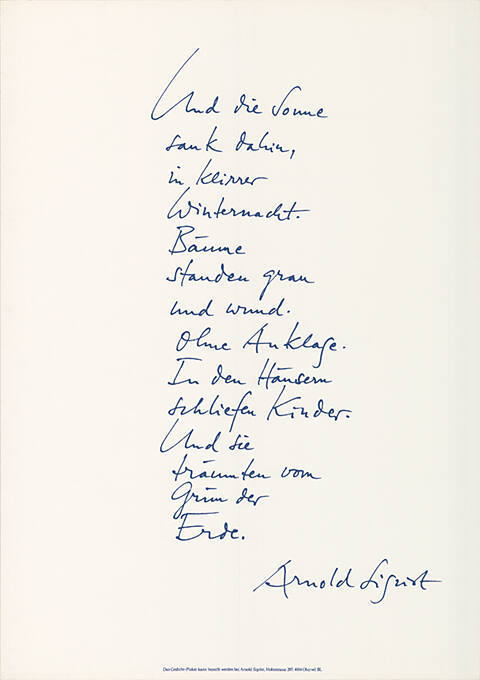 Und die Sonne
sank dahin,
in klirrer
Winternacht.
Bäume
standen grau
und wund.
Ohne Anklage.
In den Häusern
schliefen Kinder.
Und sie
träumten vom
Grün der
Erde.
Arnold Sigrist
Das Gedicht-Plakat kann bestellt werden bei Arnold Sigrist, Hohestrasse 207, 4104 Oberwil BL